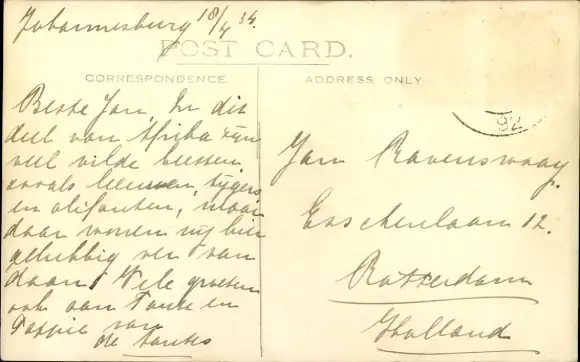 Johannesburg 18/4 34.
POST CARD.
CORRESPONDENCE.
ADDRESS ONLY
Beste Jan, In dit
deel van Afrika zijn
veel wilde beesten
zooals leeuwen, tijgers
en olifanten, maar
daar wonen wij hier
gelukkig ver van
daan. Vele groeten
ook aan Tante en
van
de Tantes
92
Jan Ravenswaay.
Esschenlaan 12.
Rotterdam
Holland